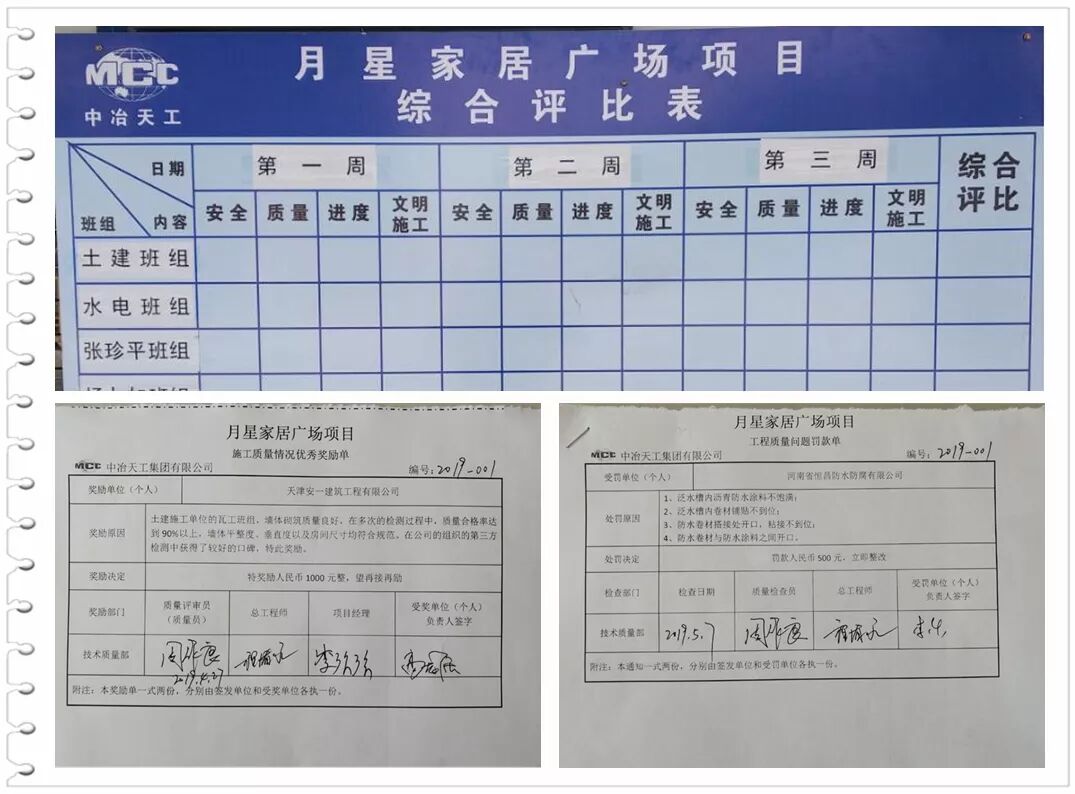 MCC
中冶天工
月星家居广场项目
综合评比表
日期
班组
内容
第一周
第二周
第三周
综合评比
安全 质量 进度 文明施工 安全 质量 进度 文明施工 安全 质量 进度 文明施工
土建班组
水电班组
张珍平班组
月星家居广场项目
施工质量情况优秀奖励单
MCC 中冶天工集团有限公司
编号:2019-001
奖励单位(个人) 天津安一建筑工程有限公司
奖励原因
土建施工单位的瓦工班组,墙体砌筑质量良好,在多次的检测过程中,质量合格率达
到90%以上,墙体平整度、垂直度以及房间尺寸均符合规范。在公司的组织的第三方
检测中获得了较好的口碑,特此奖励。
奖励决定 特奖励人民币 1000 元整,望再接再励
奖励部门
质量评审员
(质量员)
总工程师
项目经理
受奖单位(个人)
负责人签字
技术质量部
2019.4.27
附注:本奖励单一式两份,分别由签发单位和受奖单位各执一份。
月星家居广场项目
工程质量问题罚款单
MCC 中冶天工集团有限公司
编号:2019-001
受罚单位(个人) 河南省恒昌防水防腐有限公司
处罚原因
1、泛水槽内沥青防水涂料不饱满;
2、泛水槽内卷材铺贴不到位;
3、防水卷材搭接处开口,粘接不到位;
4、防水卷材与防水涂料之间开口。
处罚决定 罚款人民币 500 元,立即整改
检查部门 检查日期 质量检查员 总工程师
受罚单位(个人)
负责人签字
技术质量部 2019.5.7
附注:本通知一式两份,分别由签发单位和受罚单位各执一份。